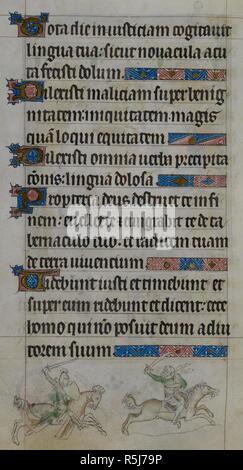 Tota die iniusticiam cogitauit
lingua tua: sicut nouacula acu
ta fecisti dolum.
Dilexisti maliciam super benig
nitatem: iniquitatem magis
quam loqui equitatem
Dilexisti omnia uerba precipita
cionis: lingua dolosa
Propterea deus destruet te in fi
nem: euellet te emigrabit te de ta
bernaculo tuo: et radicem tuam
de terra uiuentium
Uidebunt iusti et timebunt et
super eum ridebunt et dicent: ecce
homo qui non posuit deum adiu
torem suum.
alamy
www.alamy.com - R5J79P